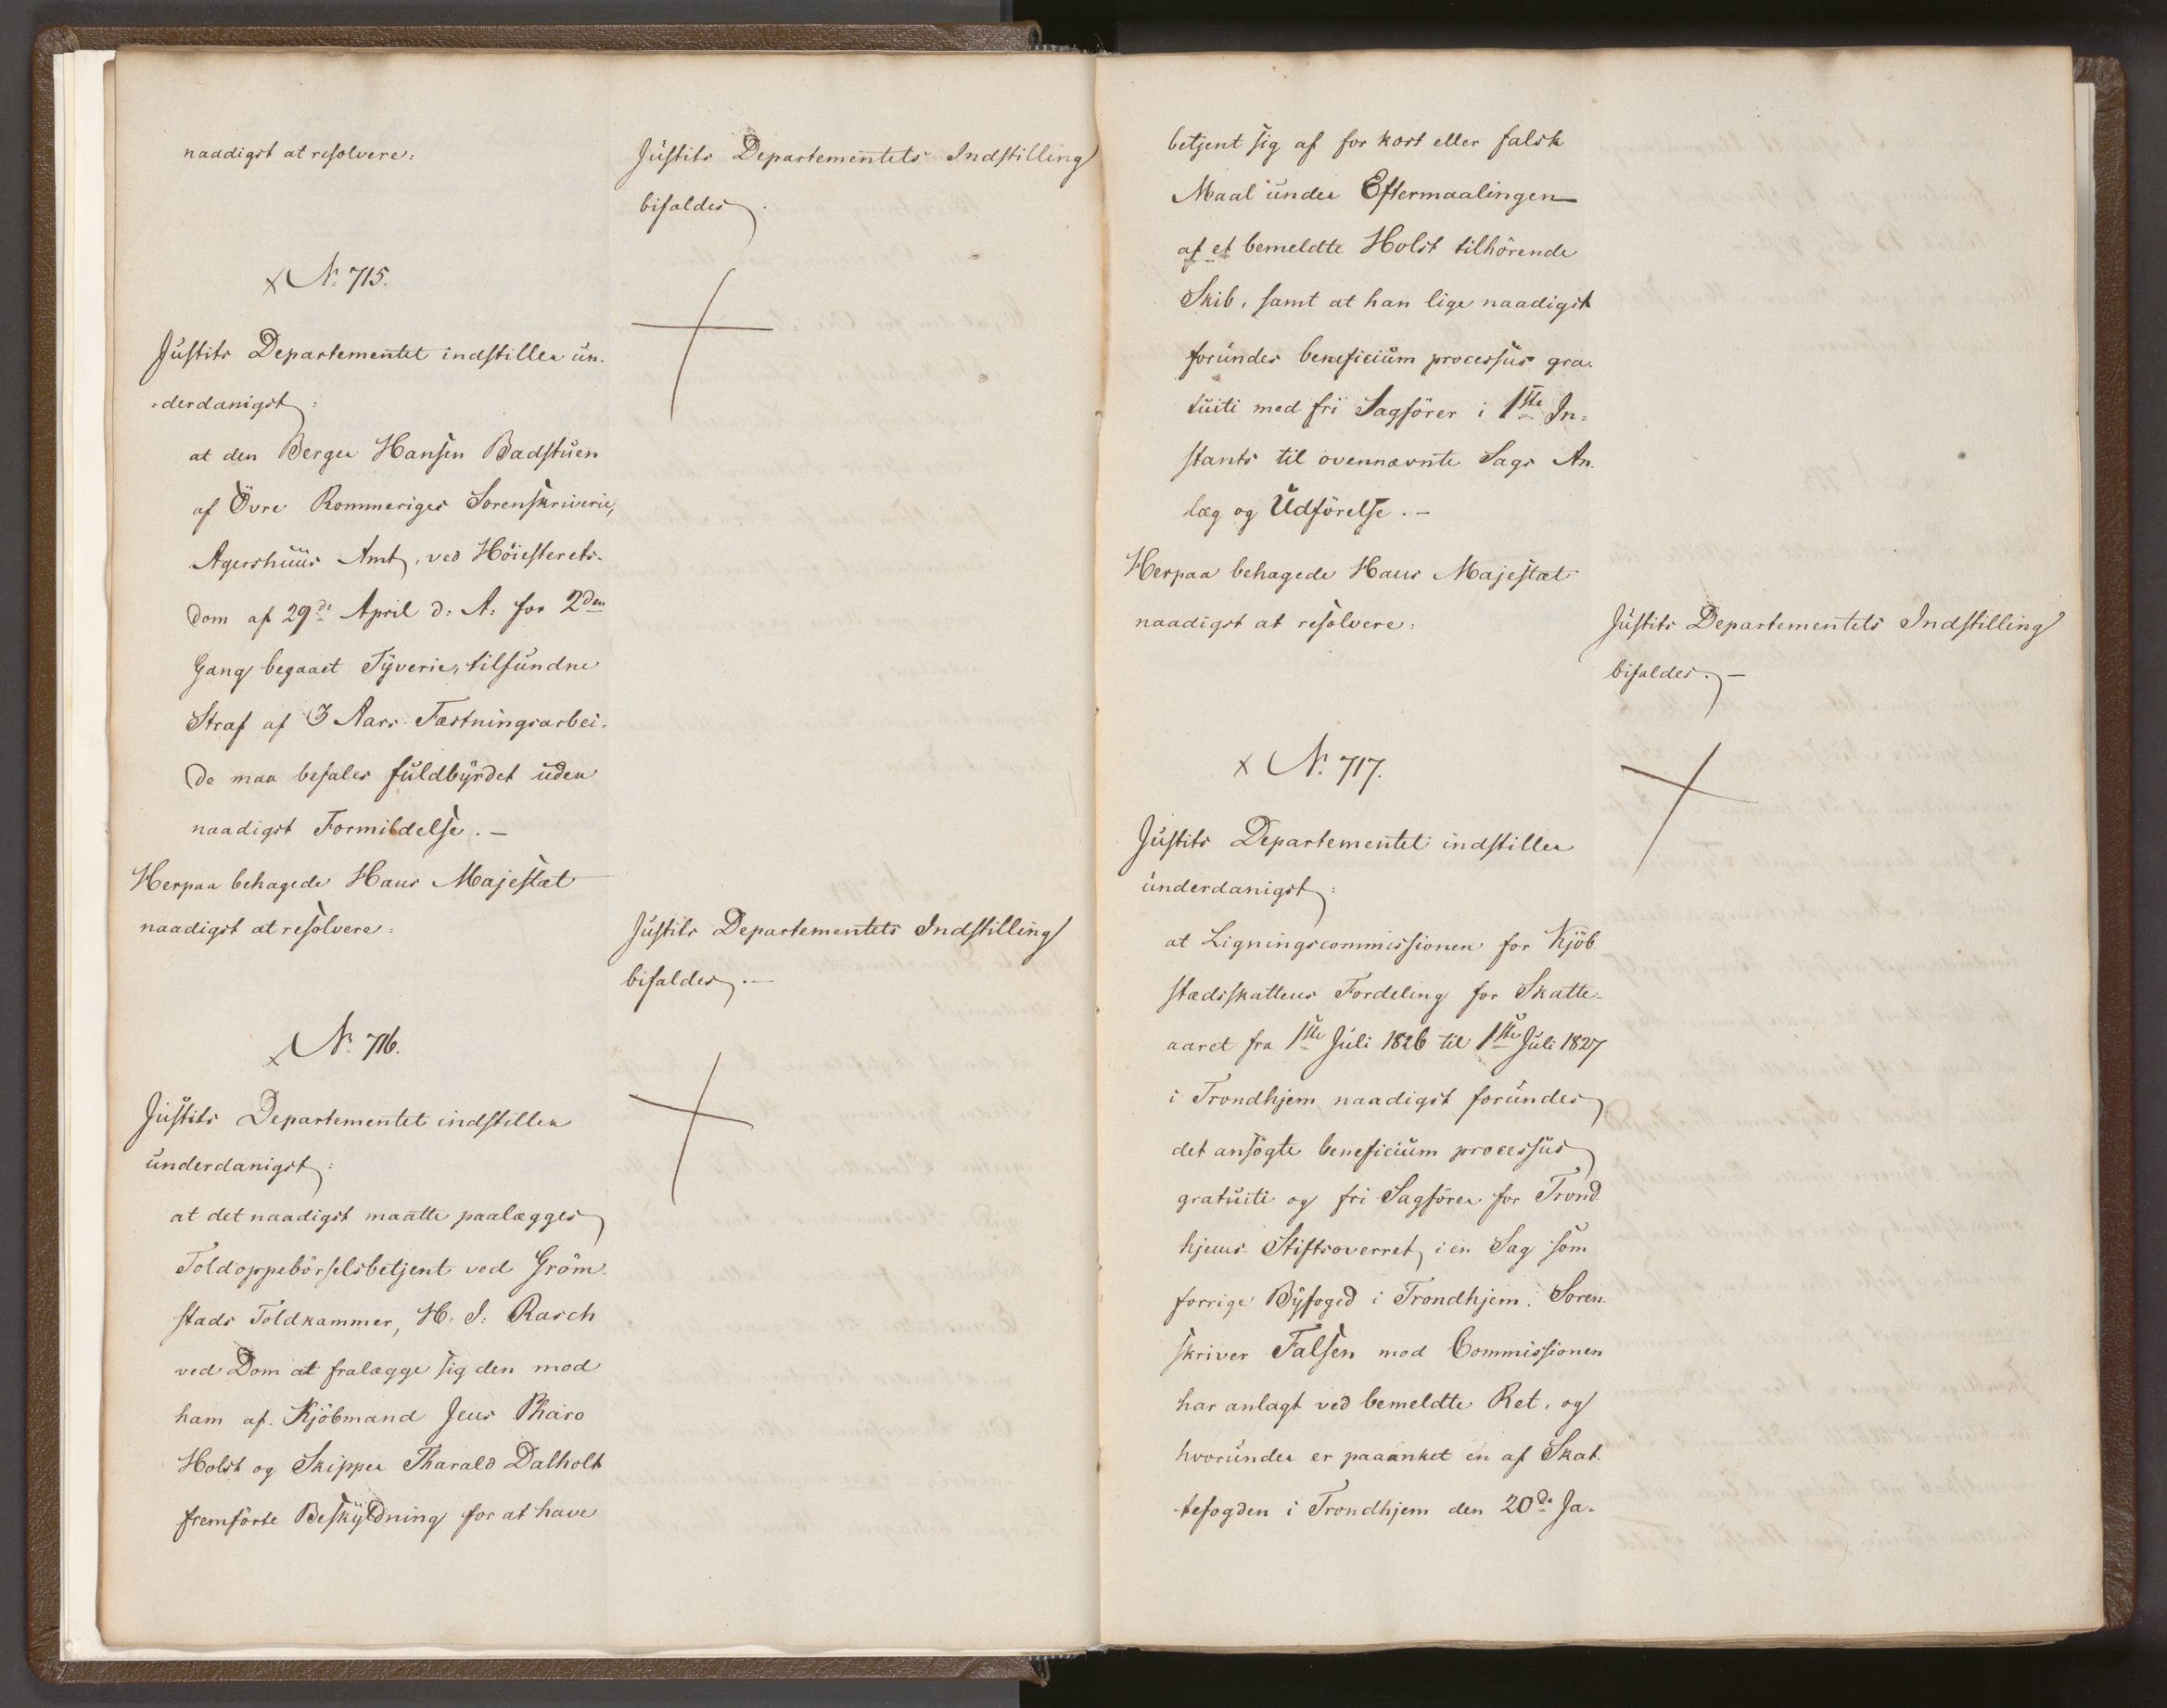 naadigst at resolvere:
Justits Departementets Indstilling
bifaldes.
x No 715.
Justits Departementet indstiller un-
-derdanigst:
at den Berger Hansen Badstuen
af Övre Rommeriges Sorenskriverie,
Agershuus Amt, ved Höiesterets-
dom af 29de April d: A: for 2den
Gang begaaet Tyverie, tilfundne
Straf af 3 Aars Fæstningsarbei-
de maa befales fuldbyrdet uden
naadigst Formildelse. -
Herpaa behagede Hans Majestæt
naadigst at resolvere:
Justits Departementets Indstilling
bifaldes. -
x No 716.
Justits Departementet indstiller
underdanigst:
at det naadigst maatte paalægges
Toldoppebörselsbetjent ved Gröm-
stads Toldkammer, H. J: Rasch
ved Dom at fralægge sig den mod
ham af Kjöbmand Jens Pharo
Holst og Skipper Tharald Dalholt
fremförte Beskyldning for at have
betjent sig af for kort eller falsk
Maal under Eftermaalingen
af et bemeldte Holst tilhörende
Skib, samt at han lige naadigst
forundes beneficium processus gra-
tuiti med fri Sagförer i 1ste In-
stants til ovennævnte Sags An-
læg og Udförelse. -
Herpaa behagede Hans Majestæt
naadigst at resolvere:
Justits Departementets Indstilling
bifaldes. -
x No 717.
Justits Departementet indstiller
underdanigst:
at Ligningscommissionen for Kjöb-
stædsskattens Fordeling for Skatte-
aaret fra 1ste Juli 1826 til 1ste Juli 1827
i Trondhjem naadigst forundes
det ansögte beneficium processus
gratuiti og fri Sagförer for Trond-
hjems Stiftsoverret, i en Sag som
forrige Byfoged i Trondhjem, Soren-
skriver Falsen mod Commissionen
har anlagt ved bemeldte Ret, og
hvorunder er paaanket en af Skat-
-tefogden i Trondhjem den 20de Ja-